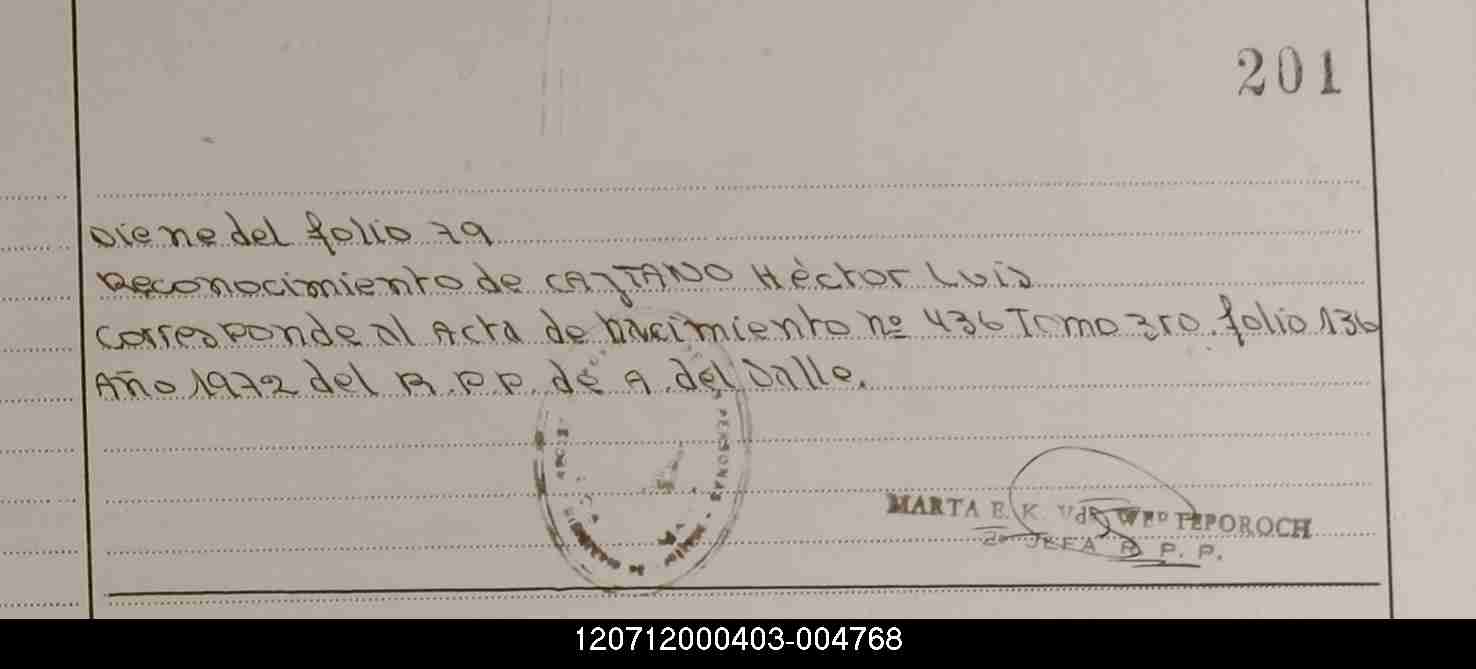 201
Viene del folio 79
Reconocimiento de CAZTANO Héctor Luis
Corresponde al Acta de nacimiento nº 436 Tomo 3ro. folio 136
Año 1972 del R.P.P. de A. del Valle.
PERSONAS
MARTA E. K. Vd
2o JEFA R. P. P.
120712000403-004768